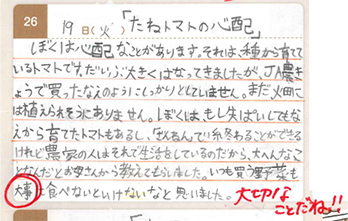 26
19日(火)「たねトマトの心配」
ぼくは心配なことがあります。それは、種から育て
ているトマトです。だいぶ大きくはなってきましたが、JA農き
ょうで買ったなえのようにしっかりとしていません。まだ畑に
は植えられそうにありません。しぼくは、もし失ぱいしてもな
えから育てたトマトもあるし、で終わることができる
けれど農家の人はそれで生活をしているのだから、大へんなこ
となんだとお母さんから教えてもらいました。いつも買う野菜も
大事に食べないといけないなと思いました。
大切な
ことだね!!